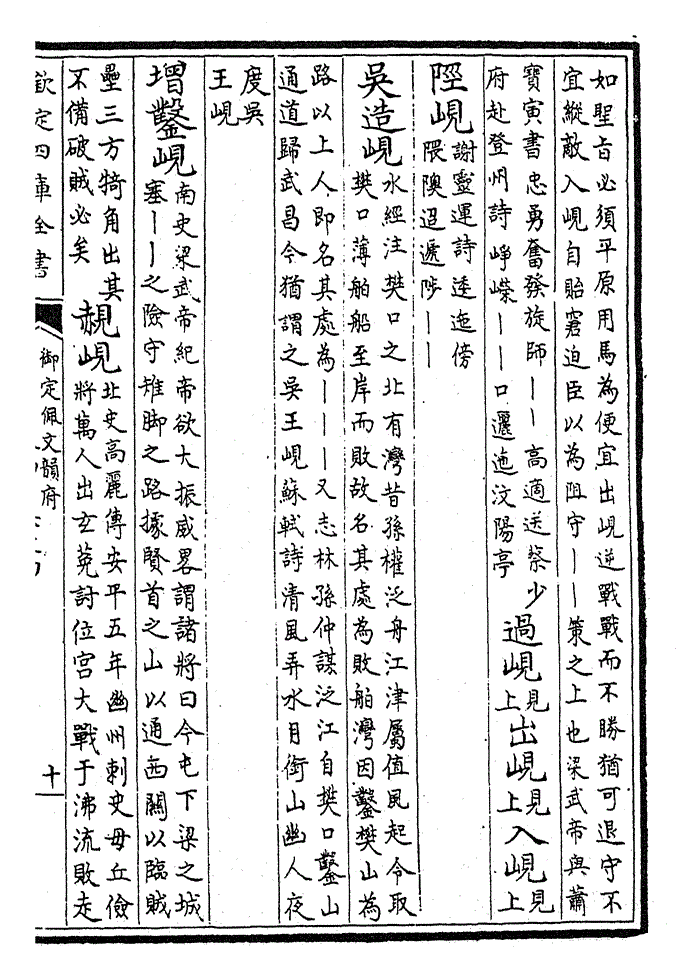 如聖旨必須平原用馬為便宜出峴逆戰戰而不勝猶可退守不
宜縱敵入峴自貽窘迫臣以為阻守丨丨策之上也梁武帝與蕭
寶寅書忠勇奮發旋師丨丨高適送蔡少
府赴登州詩崢嶸丨丨口邐迤汶陽亭
過峴見上
出峴見上
入峴見上
陘峴謝靈運詩逶迤傍
隈隩迢遞陟丨丨
吳造峴水經注樊口之北有灣昔孫權泛舟江津屬值風起令取
樊口薄舶船至岸而敗故名其處為敗舶灣因鑿樊山為
路以上人即名其處為丨丨丨又志林孫仲謀泛江自樊口鑿山
通道歸武昌今猶謂之吳王峴蘇軾詩清風弄水月銜山幽人夜
度吳
王峴
增鑿峴南史梁武帝紀帝欲大振威畧謂諸將曰今屯下梁之城
塞丨丨之險守雉脚之路據賢首之山以通西關以臨賊
壘三方犄角出其
不備破賊必矣
赬峴北史高麗傳安平五年幽州刺史毋丘儉
將萬人出玄菟討位宫大戰于沸流敗走
欽定四庫全書
御定佩文韻府
十